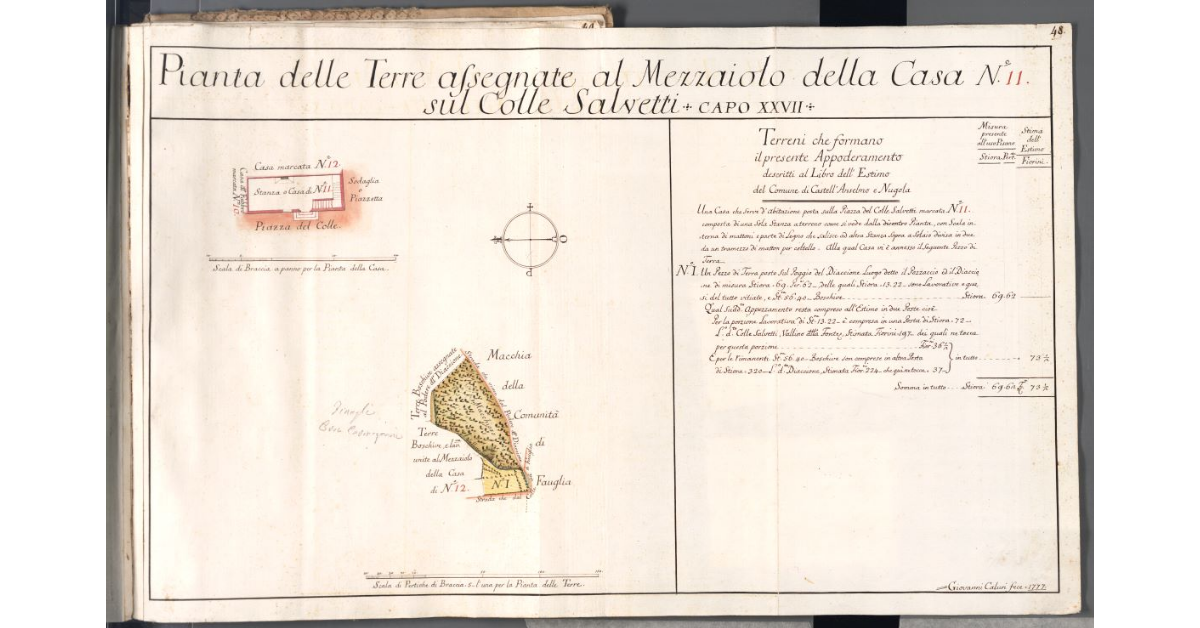 48.
Pianta delle Terre assegnate al Mezzaiolo della Casa N.º 11.
sul Colle Salvetti + CAPO XXVII +
Casa marcata Nº 12.
Stanza o Casa di Nº 11.
marcata Nº 10.
Sodaglia
o
Piazzetta
Piazza del Colle.
Scala di Braccia a panno per la Pianta della Casa.
Macchia
della
Comunità
di
Fauglia
Terre Boschive assegnate
al Podere dl' Diaccione
Terre
Boschive, e
unite al Mezzaiolo
della Casa
di Nº 12.
Nº I
Scala di Pertiche di Braccia 5. l'una per la Pianta delle Terre.
Terreni che formano
il presente Appoderamento
descritti al Libro dell' Estimo
del Comune di Castell' Anselmo e Nugola
Misura
presente
Stiora
Stima
dell'
Estimo
Fiorini
Una Casa che serve d'Abitazione posta sulla Piazza del Colle Salvetti marcata Nº 11.
composta di una Sola Stanza a terreno come si vede dalla dicontro Pianta, con Scala in-
terna di mattoni e parte di Legno che salisce ad altra Stanza sopra a Solaio divisa in due
da un tramezzo di matton per coltello. Alla qual Casa vi è annesso il seguente Pezzo di
Terra
Nº I. Un Pezzo di Terra posto sul Poggio del Diaccione Luogo detto il Pozzaccio ed il Diaccio
ne di misura Stiora 69. delle quali Stiora 13.22 sono Lavorative e qua
si del tutto vitiate, e St. 56.40 Boschive Stiora 69.62
Qual Sudº Appezzamento resta compreso all'Estimo in due Poste cioè
Per la porzione Lavorativa di St. 13.22 è compresa in una Posta di Stiora 72
L. dº Colle Salvetti, Stimata Fiorini 197. dei quali ne tocca
per questa porzione Fior. 36½
E per le rimanenti St. 56.40. Boschive son comprese in altra Posta in tutto 73½
di Stiora 320 L. dº Diaccione, Stimata Fior. 274 che quì ne tocca 37
Somma in tutto Stiora 69.62 73½
Giovanni Caluri fece 1777